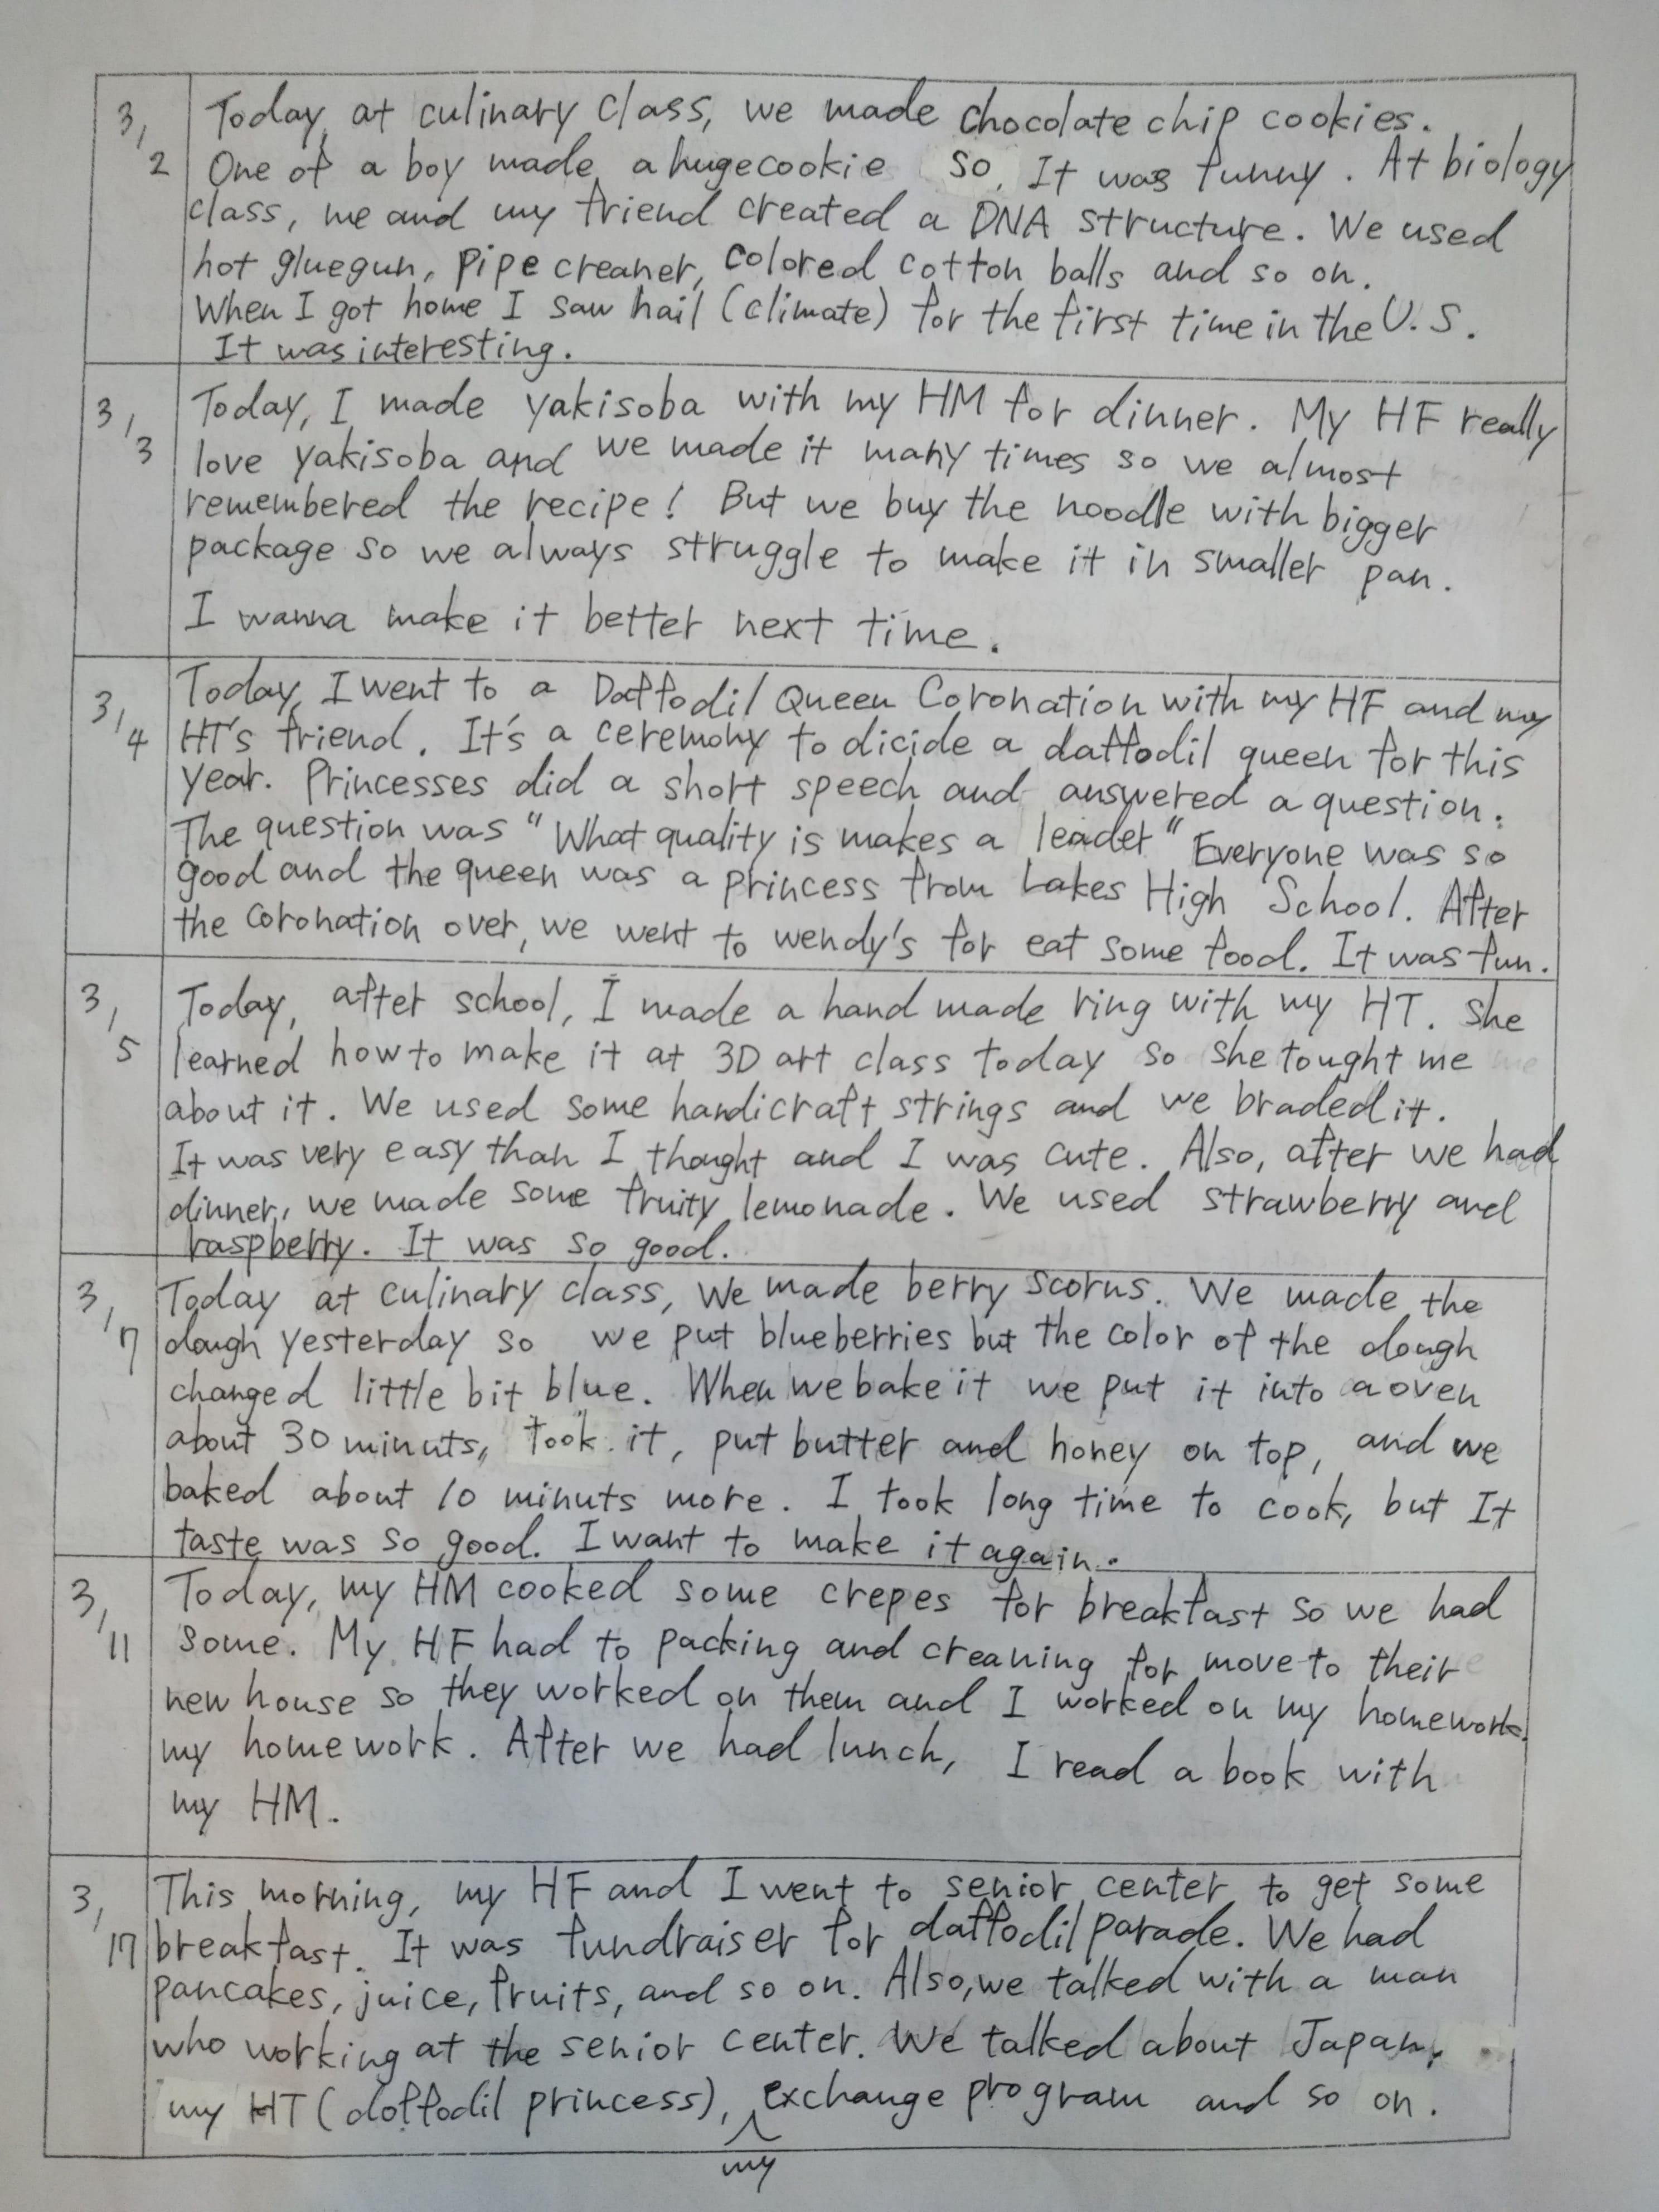 3/2
Today, at culinary class, we made chocolate chip cookies.
One of a boy made a huge cookie so, It was funny. At biology
class, me and my friend created a DNA structure. We used
hot gluegun, pipe creaner, colored cotton balls and so on.
When I got home I saw hail (climate) for the first time in the U.S.
It was interesting.
3/3
Today, I made yakisoba with my HM for dinner. My HF really
love yakisoba and we made it many times so we almost
remembered the recipe! But we buy the noodle with bigger
package so we always struggle to make it in smaller pan.
I wanna make it better next time.
3/4
Today, I went to a Daffodil Queen Coronation with my HF and my
HT's friend. It's a ceremony to dicide a daffodil queen for this
year. Princesses did a short speech and answered a question.
The question was "What quality is makes a leader" Everyone was so
good and the queen was a princess from Lakes High School. After
the coronation over, we went to wendy's for eat some food. It was fun.
3/5
Today, after school, I made a hand made ring with my HT. She
learned how to make it at 3D art class today so she tought me
about it. We used some handicraft strings and we braded it.
It was very easy than I thought and I was cute. Also, after we had
dinner, we made some fruity lemonade. We used strawberry and
raspberry. It was so good.
3/7
Today at culinary class, we made berry scorns. We made the
dough yesterday so we put blueberries but the color of the dough
changed little bit blue. When we bake it we put it into a oven
about 30 minuts, took it, put butter and honey on top, and we
baked about 10 minuts more. I took long time to cook, but It
taste was so good. I want to make it again.
3/11
Today, my HM cooked some crepes for breakfast so we had
some. My HF had to packing and creaning for move to their
new house so they worked on them and I worked on my homework.
my homework. After we had lunch, I read a book with
my HM.
3/17
This morning, my HF and I went to senior center to get some
breakfast. It was fundraiser for daffodil parade. We had
pancakes, juice, fruits, and so on. Also, we talked with a man
who working at the senior center. We talked about Japan,
my HT (doffodil princess), exchange program and so on.
my